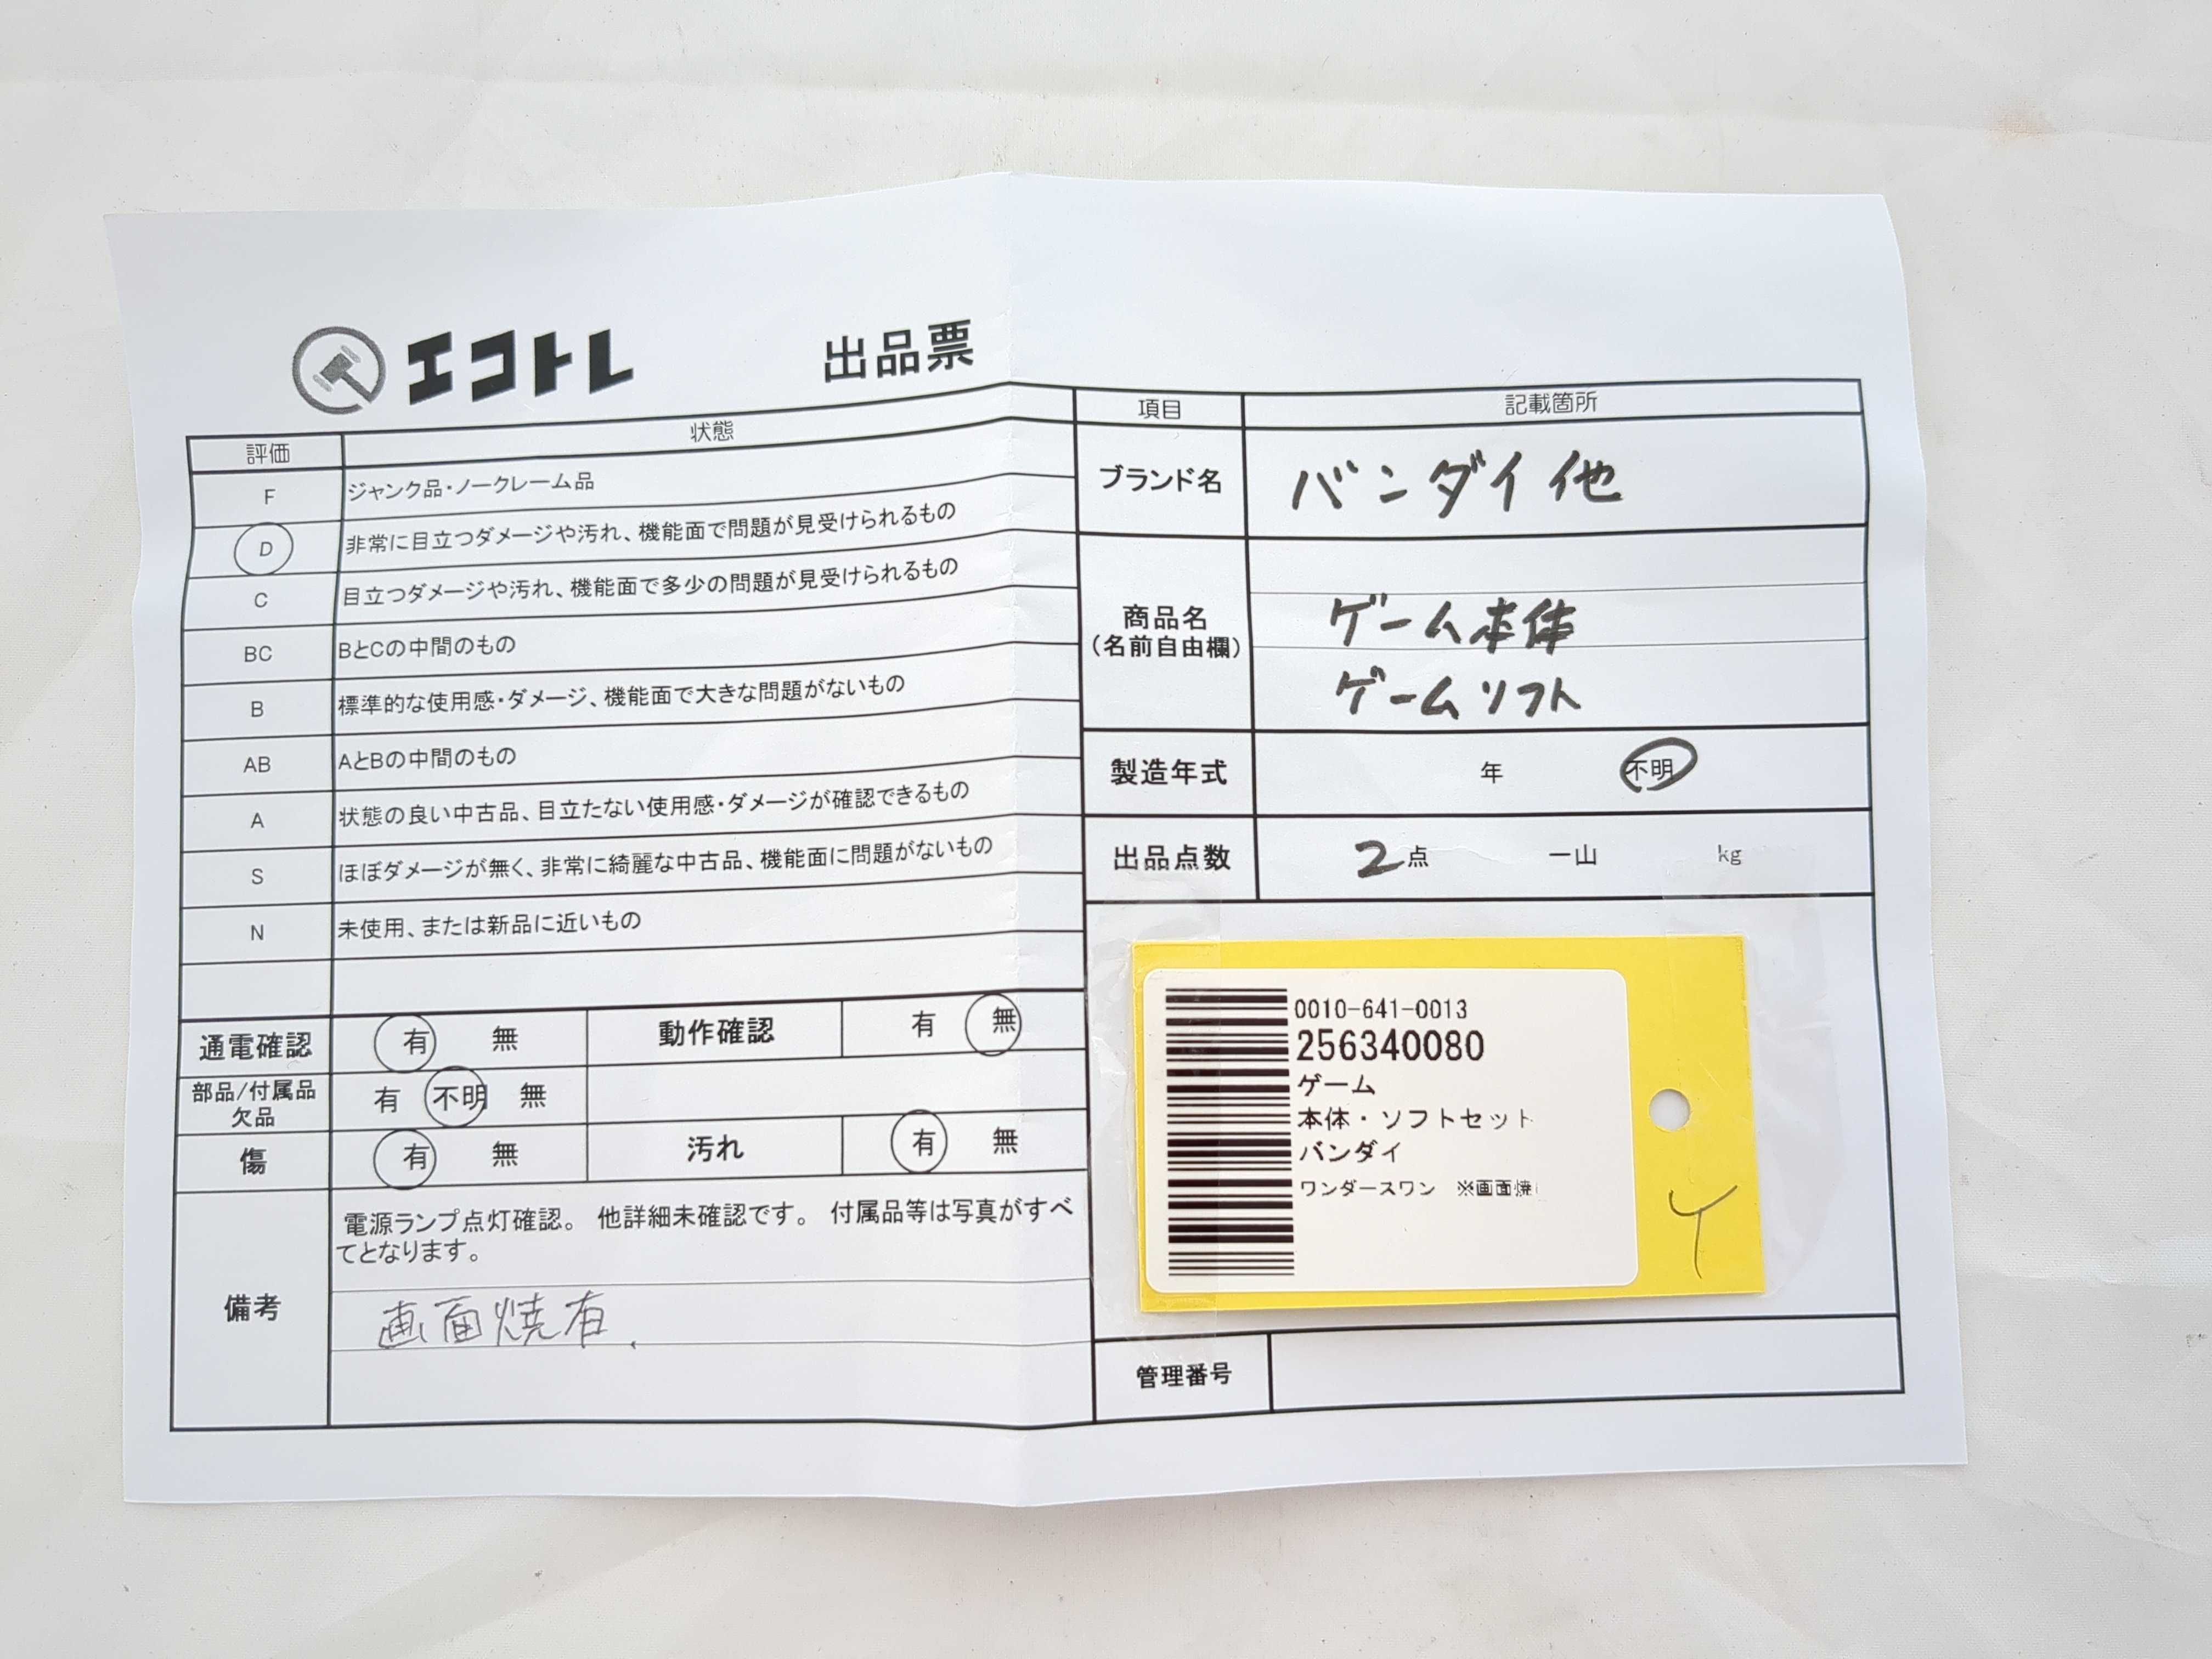 エコトレ 出品票
評価 状態
F ジャンク品・ノークレーム品
D 非常に目立つダメージや汚れ、機能面で問題が見受けられるもの
C 目立つダメージや汚れ、機能面で多少の問題が見受けられるもの
BC BとCの中間のもの
B 標準的な使用感・ダメージ、機能面で大きな問題がないもの
AB AとBの中間のもの
A 状態の良い中古品、目立たない使用感・ダメージが確認できるもの
S ほぼダメージが無く、非常に綺麗な中古品、機能面に問題がないもの
N 未使用、または新品に近いもの
通電確認 有 無 動作確認 有 無
部品/付属品
欠品 有 不明 無
傷 有 無 汚れ 有 無
備考
電源ランプ点灯確認。 他詳細未確認です。 付属品等は写真がすべ
てとなります。
画面焼有.
項目 記載箇所
ブランド名 バンダイ 他
商品名
(名前自由欄)
ゲーム本体
ゲームソフト
製造年式 年 不明
出品点数 2点 一山 kg
0010-641-0013
256340080
ゲーム
本体・ソフトセット
バンダイ
ワンダースワン ※画面焼
管理番号